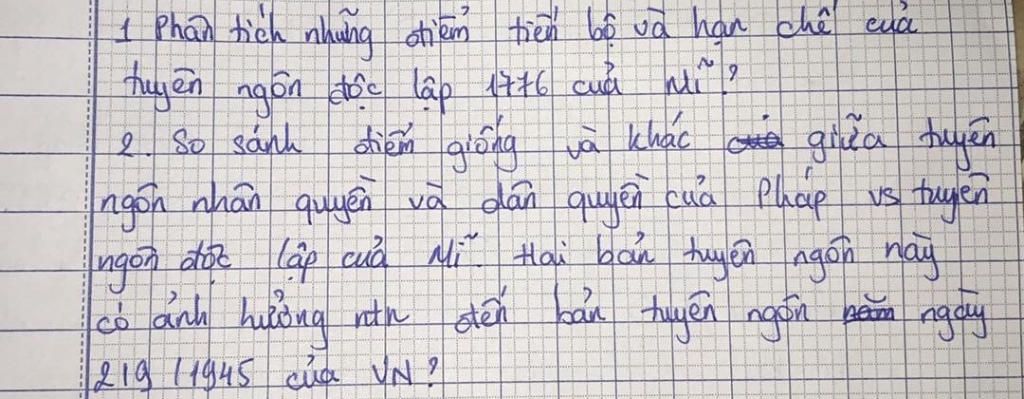 1 Phân tích những điểm tiến bộ và hạn chế của
tuyên ngôn độc lập 1776 của Mĩ?
2. So sánh điểm giống và khác giữa tuyên
ngôn nhân quyền và dân quyền của Pháp vs tuyên
ngôn độc lập của Mĩ. Hai bản tuyên ngôn này
có ảnh hưởng ntn đến bản tuyên ngôn ngày
2/9/1945 của VN?